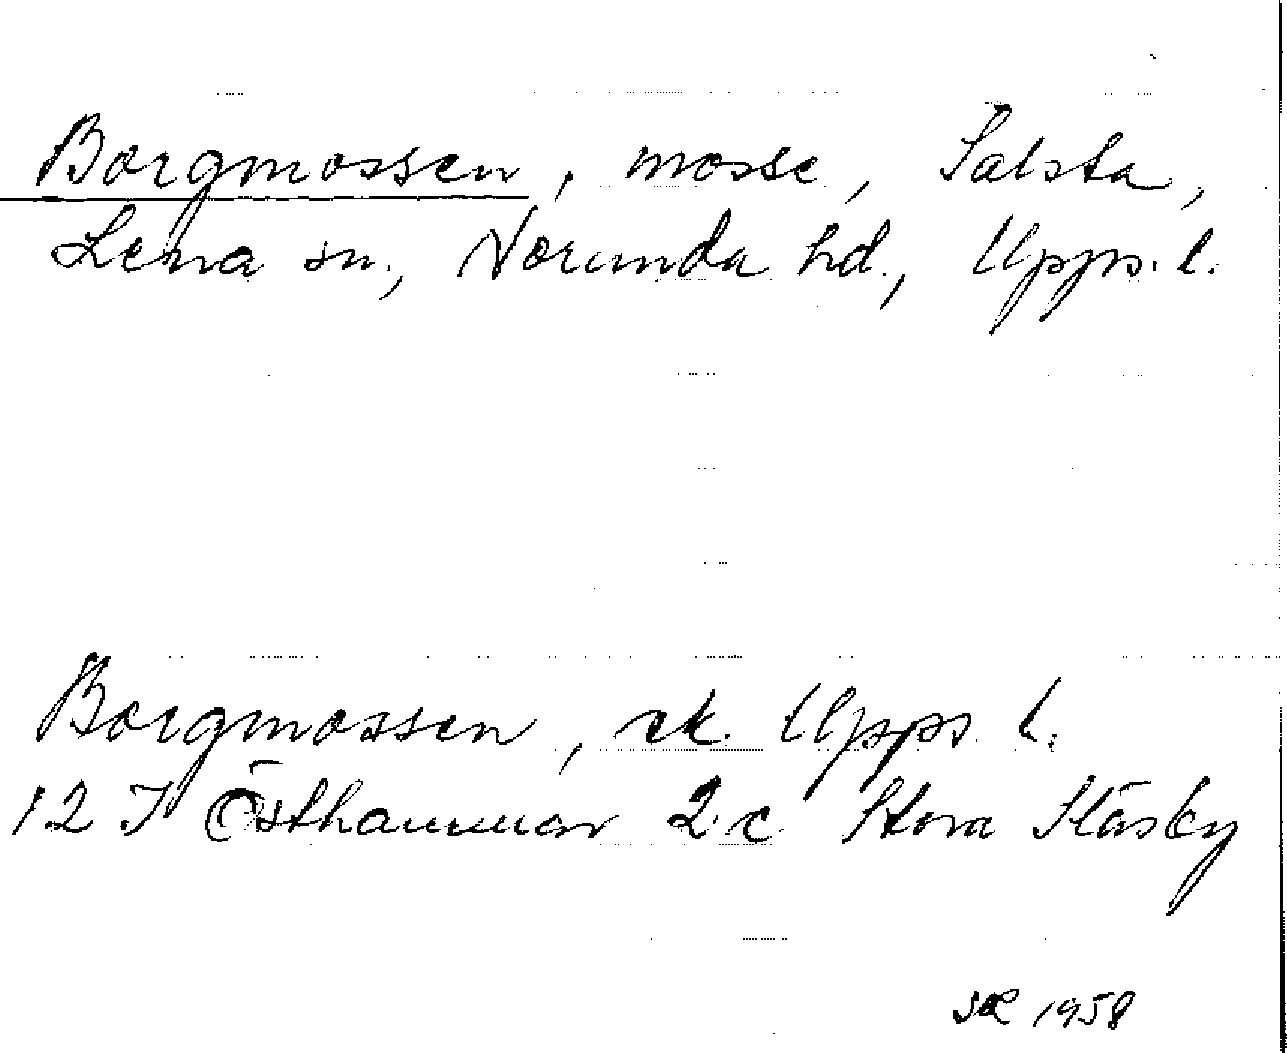 Borgmossen, mosse, Salsta,
Lena sn., Norunda hd., Upps. l.
Borgmossen, ek. Upps. l.
12 I Östhammar 2 c Stora Väsby
1958